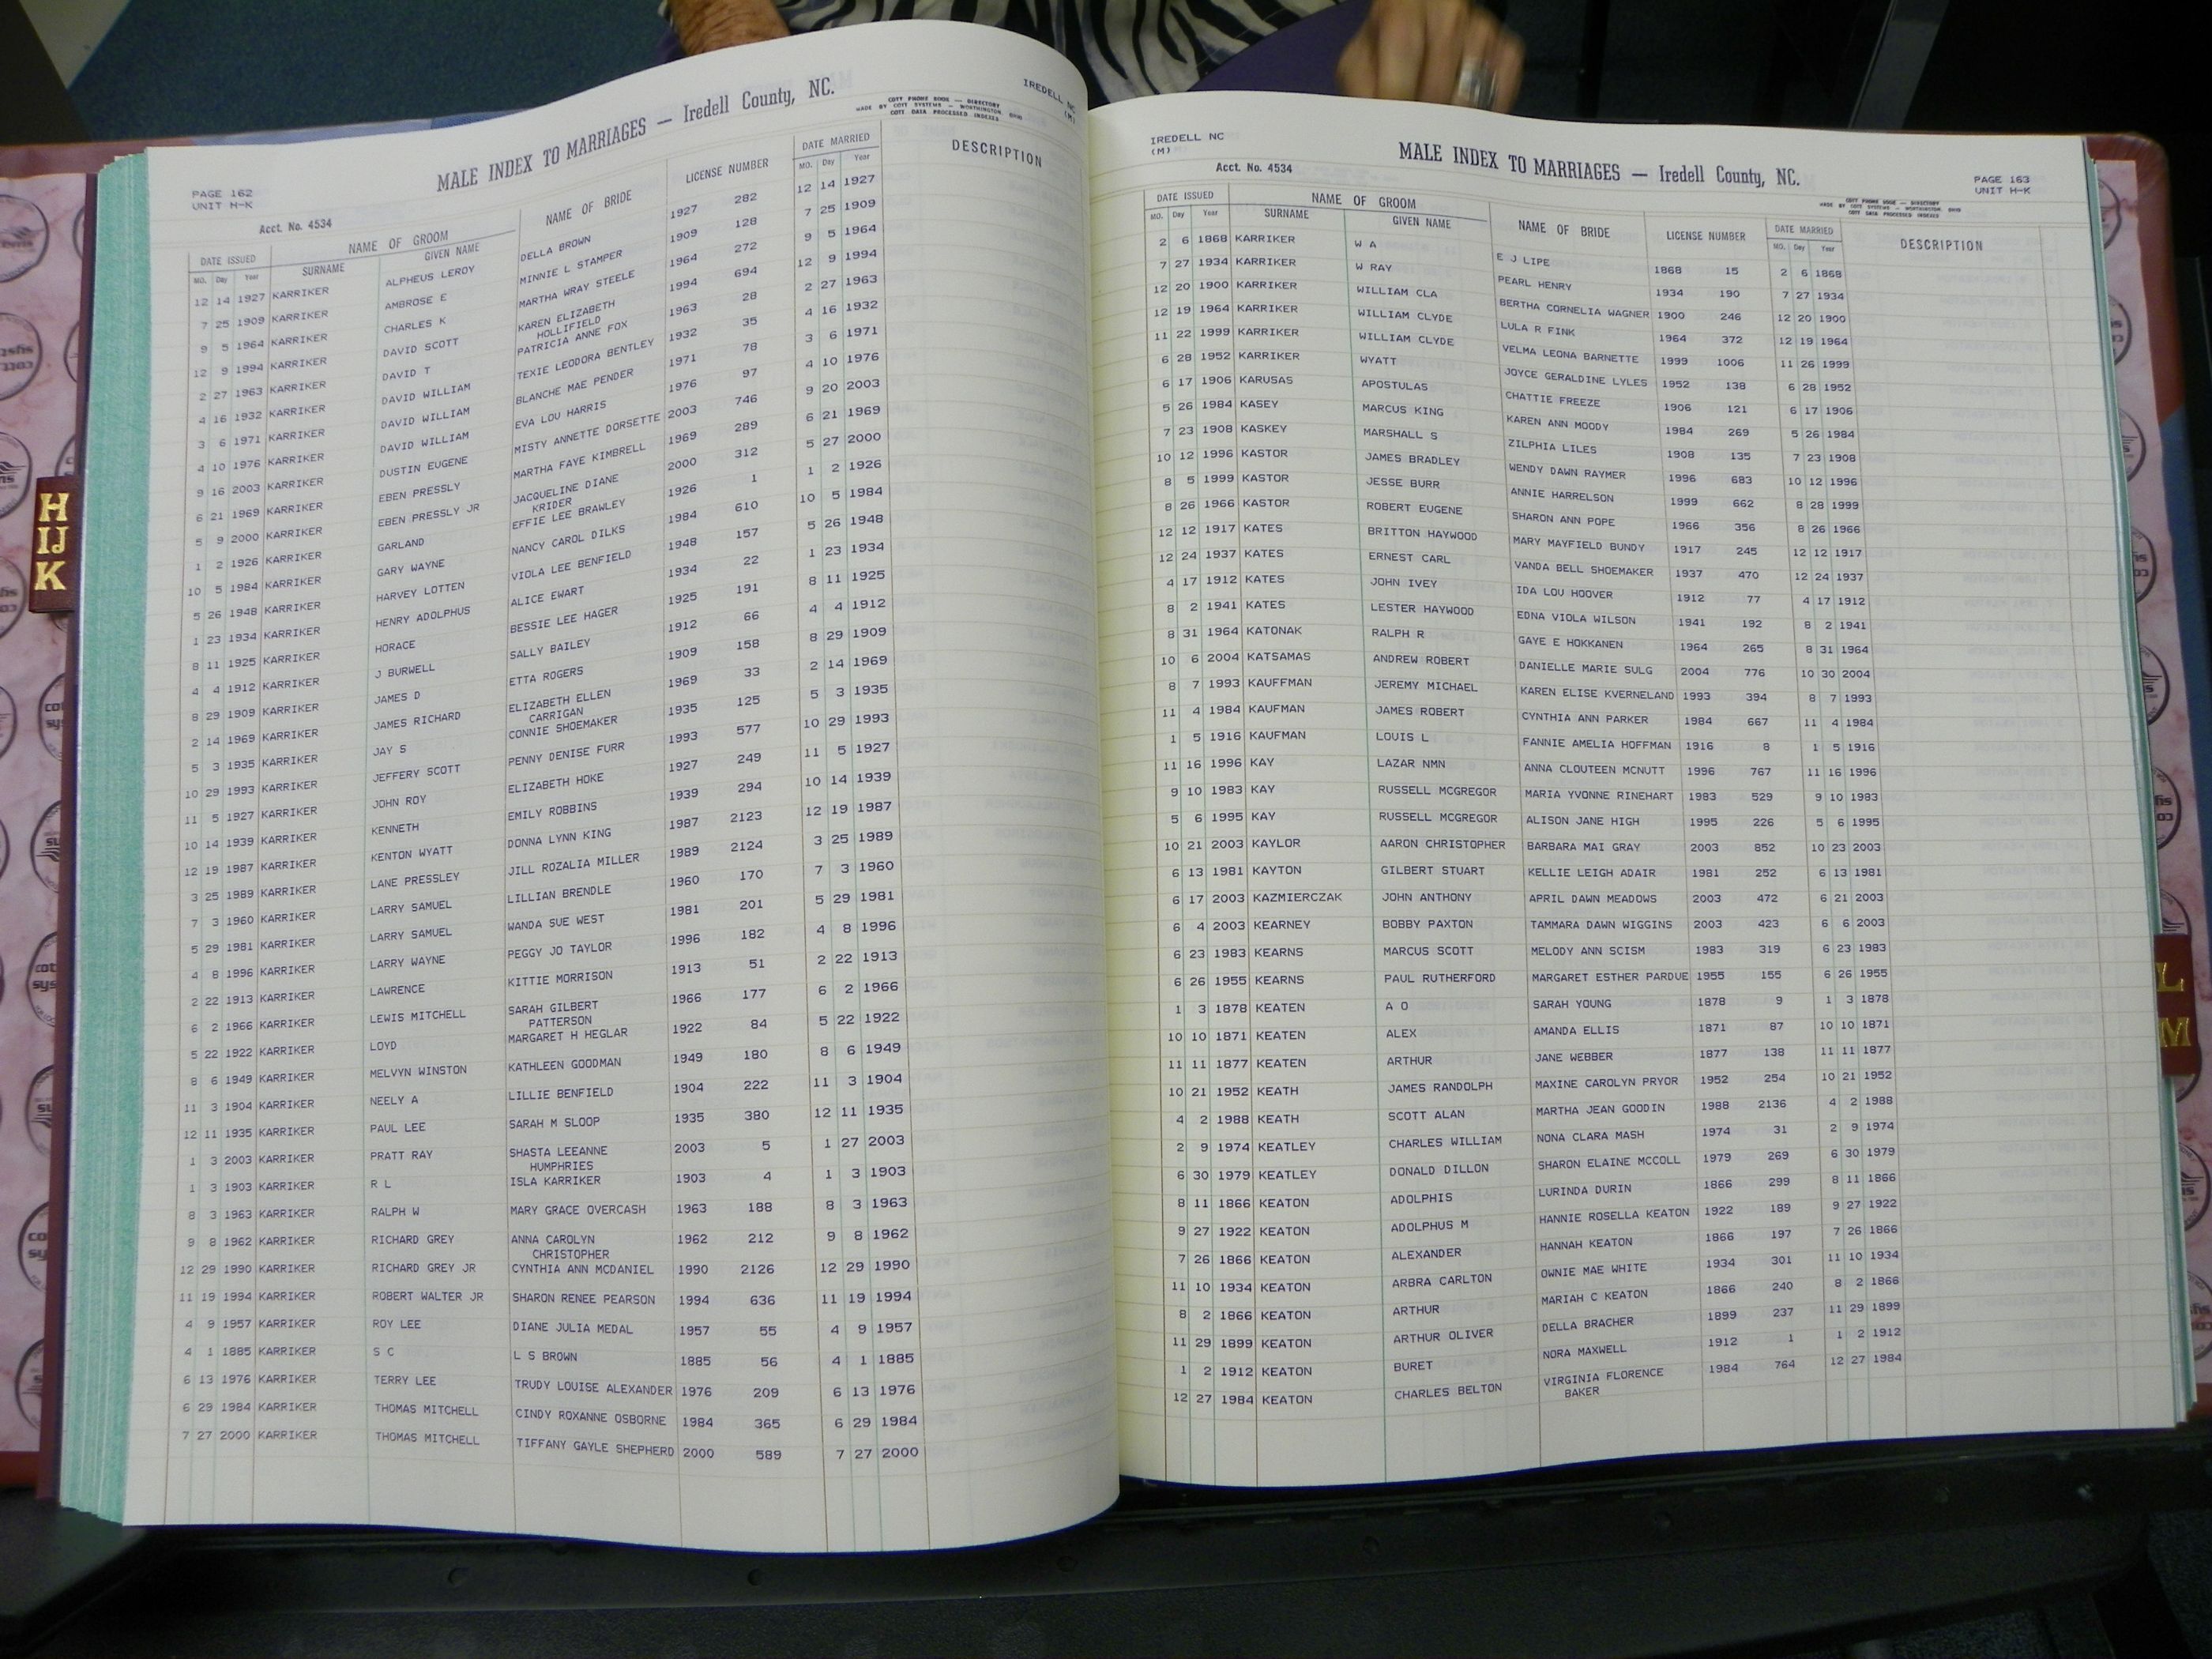 PAGE 162
UNIT H-K
MALE INDEX TO MARRIAGES — Iredell County, NC.
COTT PHONE BOOK — DIRECTORY
MADE BY COTT SYSTEMS — WORTHINGTON, OHIO
COTT DATA PROCESSED INDEXES
IREDELL NC
(M)
Acct. No. 4534
DATE ISSUED NAME OF GROOM NAME OF BRIDE LICENSE NUMBER DATE MARRIED DESCRIPTION
MO. Day Year SURNAME GIVEN NAME MO. Day Year
12 14 1927 KARRIKER ALPHEUS LEROY DELLA BROWN 1927 282 12 14 1927
7 25 1909 KARRIKER AMBROSE E MINNIE L STAMPER 1909 128 7 25 1909
9 5 1964 KARRIKER CHARLES K MARTHA WRAY STEELE 1964 272 9 5 1964
12 9 1994 KARRIKER DAVID SCOTT KAREN ELIZABETH 1994 694 12 9 1994
HOLLIFIELD
2 27 1963 KARRIKER DAVID T PATRICIA ANNE FOX 1963 28 2 27 1963
4 16 1932 KARRIKER DAVID WILLIAM TEXIE LEODORA BENTLEY 1932 35 4 16 1932
3 6 1971 KARRIKER DAVID WILLIAM BLANCHE MAE PENDER 1971 78 3 6 1971
4 10 1976 KARRIKER DAVID WILLIAM EVA LOU HARRIS 1976 97 4 10 1976
9 16 2003 KARRIKER DUSTIN EUGENE MISTY ANNETTE DORSETTE 2003 746 9 20 2003
6 21 1969 KARRIKER EBEN PRESSLY MARTHA FAYE KIMBRELL 1969 289 6 21 1969
5 9 2000 KARRIKER EBEN PRESSLY JR JACQUELINE DIANE 2000 312 5 27 2000
KRIDER
1 2 1926 KARRIKER GARLAND EFFIE LEE BRAWLEY 1926 1 1 2 1926
10 5 1984 KARRIKER GARY WAYNE NANCY CAROL DILKS 1984 610 10 5 1984
5 26 1948 KARRIKER HARVEY LOTTEN VIOLA LEE BENFIELD 1948 157 5 26 1948
1 23 1934 KARRIKER HENRY ADOLPHUS ALICE EWART 1934 22 1 23 1934
8 11 1925 KARRIKER HORACE BESSIE LEE HAGER 1925 191 8 11 1925
4 4 1912 KARRIKER J BURWELL SALLY BAILEY 1912 66 4 4 1912
8 29 1909 KARRIKER JAMES D ETTA ROGERS 1909 158 8 29 1909
2 14 1969 KARRIKER JAMES RICHARD ELIZABETH ELLEN 1969 33 2 14 1969
CARRIGAN
5 3 1935 KARRIKER JAY S CONNIE SHOEMAKER 1935 125 5 3 1935
10 29 1993 KARRIKER JEFFERY SCOTT PENNY DENISE FURR 1993 577 10 29 1993
11 5 1927 KARRIKER JOHN ROY ELIZABETH HOKE 1927 249 11 5 1927
10 14 1939 KARRIKER KENNETH EMILY ROBBINS 1939 294 10 14 1939
12 19 1987 KARRIKER KENTON WYATT DONNA LYNN KING 1987 2123 12 19 1987
3 25 1989 KARRIKER LANE PRESSLEY JILL ROZALIA MILLER 1989 2124 3 25 1989
7 3 1960 KARRIKER LARRY SAMUEL LILLIAN BRENDLE 1960 170 7 3 1960
5 29 1981 KARRIKER LARRY SAMUEL WANDA SUE WEST 1981 201 5 29 1981
4 8 1996 KARRIKER LARRY WAYNE PEGGY JO TAYLOR 1996 182 4 8 1996
2 22 1913 KARRIKER LAWRENCE KITTIE MORRISON 1913 51 2 22 1913
6 2 1966 KARRIKER LEWIS MITCHELL SARAH GILBERT 1966 177 6 2 1966
PATTERSON
5 22 1922 KARRIKER LOYD MARGARET H HEGLAR 1922 84 5 22 1922
8 6 1949 KARRIKER MELVYN WINSTON KATHLEEN GOODMAN 1949 180 8 6 1949
11 3 1904 KARRIKER NEELY A LILLIE BENFIELD 1904 222 11 3 1904
12 11 1935 KARRIKER PAUL LEE SARAH M SLOOP 1935 380 12 11 1935
1 3 2003 KARRIKER PRATT RAY SHASTA LEEANNE 2003 5 1 27 2003
HUMPHRIES
1 3 1903 KARRIKER R L ISLA KARRIKER 1903 4 1 3 1903
8 3 1963 KARRIKER RALPH W MARY GRACE OVERCASH 1963 188 8 3 1963
9 8 1962 KARRIKER RICHARD GREY ANNA CAROLYN 1962 212 9 8 1962
CHRISTOPHER
12 29 1990 KARRIKER RICHARD GREY JR CYNTHIA ANN MCDANIEL 1990 2126 12 29 1990
11 19 1994 KARRIKER ROBERT WALTER JR SHARON RENEE PEARSON 1994 636 11 19 1994
4 9 1957 KARRIKER ROY LEE DIANE JULIA MEDAL 1957 55 4 9 1957
4 1 1885 KARRIKER S C L S BROWN 1885 56 4 1 1885
6 13 1976 KARRIKER TERRY LEE TRUDY LOUISE ALEXANDER 1976 209 6 13 1976
6 29 1984 KARRIKER THOMAS MITCHELL CINDY ROXANNE OSBORNE 1984 365 6 29 1984
7 27 2000 KARRIKER THOMAS MITCHELL TIFFANY GAYLE SHEPHERD 2000 589 7 27 2000
IREDELL NC
(M)
MALE INDEX TO MARRIAGES — Iredell County, NC.
PAGE 163
UNIT H-K
Acct. No. 4534
COTT PHONE BOOK — DIRECTORY
MADE BY COTT SYSTEMS — WORTHINGTON, OHIO
COTT DATA PROCESSED INDEXES
DATE ISSUED NAME OF GROOM NAME OF BRIDE LICENSE NUMBER DATE MARRIED DESCRIPTION
MO. Day Year SURNAME GIVEN NAME MO. Day Year
2 6 1868 KARRIKER W A E J LIPE 1868 15 2 6 1868
7 27 1934 KARRIKER W RAY PEARL HENRY 1934 190 7 27 1934
12 20 1900 KARRIKER WILLIAM CLA BERTHA CORNELIA WAGNER 1900 246 12 20 1900
12 19 1964 KARRIKER WILLIAM CLYDE LULA R FINK 1964 372 12 19 1964
11 22 1999 KARRIKER WILLIAM CLYDE VELMA LEONA BARNETTE 1999 1006 11 26 1999
6 28 1952 KARRIKER WYATT JOYCE GERALDINE LYLES 1952 138 6 28 1952
6 17 1906 KARUSAS APOSTULAS CHATTIE FREEZE 1906 121 6 17 1906
5 26 1984 KASEY MARCUS KING KAREN ANN MOODY 1984 269 5 26 1984
7 23 1908 KASKEY MARSHALL S ZILPHIA LILES 1908 135 7 23 1908
10 12 1996 KASTOR JAMES BRADLEY WENDY DAWN RAYMER 1996 683 10 12 1996
8 5 1999 KASTOR JESSE BURR ANNIE HARRELSON 1999 662 8 28 1999
8 26 1966 KASTOR ROBERT EUGENE SHARON ANN POPE 1966 356 8 26 1966
12 12 1917 KATES BRITTON HAYWOOD MARY MAYFIELD BUNDY 1917 245 12 12 1917
12 24 1937 KATES ERNEST CARL VANDA BELL SHOEMAKER 1937 470 12 24 1937
4 17 1912 KATES JOHN IVEY IDA LOU HOOVER 1912 77 4 17 1912
8 2 1941 KATES LESTER HAYWOOD EDNA VIOLA WILSON 1941 192 8 2 1941
8 31 1964 KATONAK RALPH R GAYE E HOKKANEN 1964 265 8 31 1964
10 6 2004 KATSAMAS ANDREW ROBERT DANIELLE MARIE SULG 2004 776 10 30 2004
8 7 1993 KAUFFMAN JEREMY MICHAEL KAREN ELISE KVERNELAND 1993 394 8 7 1993
11 4 1984 KAUFMAN JAMES ROBERT CYNTHIA ANN PARKER 1984 667 11 4 1984
1 5 1916 KAUFMAN LOUIS L FANNIE AMELIA HOFFMAN 1916 8 1 5 1916
11 16 1996 KAY LAZAR NMN ANNA CLOUTEEN MCNUTT 1996 767 11 16 1996
9 10 1983 KAY RUSSELL MCGREGOR MARIA YVONNE RINEHART 1983 529 9 10 1983
5 6 1995 KAY RUSSELL MCGREGOR ALISON JANE HIGH 1995 226 5 6 1995
10 21 2003 KAYLOR AARON CHRISTOPHER BARBARA MAI GRAY 2003 852 10 23 2003
6 13 1981 KAYTON GILBERT STUART KELLIE LEIGH ADAIR 1981 252 6 13 1981
6 17 2003 KAZMIERCZAK JOHN ANTHONY APRIL DAWN MEADOWS 2003 472 6 21 2003
6 4 2003 KEARNEY BOBBY PAXTON TAMMARA DAWN WIGGINS 2003 423 6 6 2003
6 23 1983 KEARNS MARCUS SCOTT MELODY ANN SCISM 1983 319 6 23 1983
6 26 1955 KEARNS PAUL RUTHERFORD MARGARET ESTHER PARDUE 1955 155 6 26 1955
1 3 1878 KEATEN A O SARAH YOUNG 1878 9 1 3 1878
10 10 1871 KEATEN ALEX AMANDA ELLIS 1871 87 10 10 1871
11 11 1877 KEATEN ARTHUR JANE WEBBER 1877 138 11 11 1877
10 21 1952 KEATH JAMES RANDOLPH MAXINE CAROLYN PRYOR 1952 254 10 21 1952
4 2 1988 KEATH SCOTT ALAN MARTHA JEAN GOODIN 1988 2136 4 2 1988
2 9 1974 KEATLEY CHARLES WILLIAM NONA CLARA MASH 1974 31 2 9 1974
6 30 1979 KEATLEY DONALD DILLON SHARON ELAINE MCCOLL 1979 269 6 30 1979
8 11 1866 KEATON ADOLPHIS LURINDA DURIN 1866 299 8 11 1866
9 27 1922 KEATON ADOLPHUS M HANNIE ROSELLA KEATON 1922 189 9 27 1922
7 26 1866 KEATON ALEXANDER HANNAH KEATON 1866 197 7 26 1866
11 10 1934 KEATON ARBRA CARLTON OWNIE MAE WHITE 1934 301 11 10 1934
8 2 1866 KEATON ARTHUR MARIAH C KEATON 1866 240 8 2 1866
11 29 1899 KEATON ARTHUR OLIVER DELLA BRACHER 1899 237 11 29 1899
1 2 1912 KEATON BURET NORA MAXWELL 1912 1 1 2 1912
12 27 1984 KEATON CHARLES BELTON VIRGINIA FLORENCE 1984 764 12 27 1984
BAKER
H
IJ
K
L
M